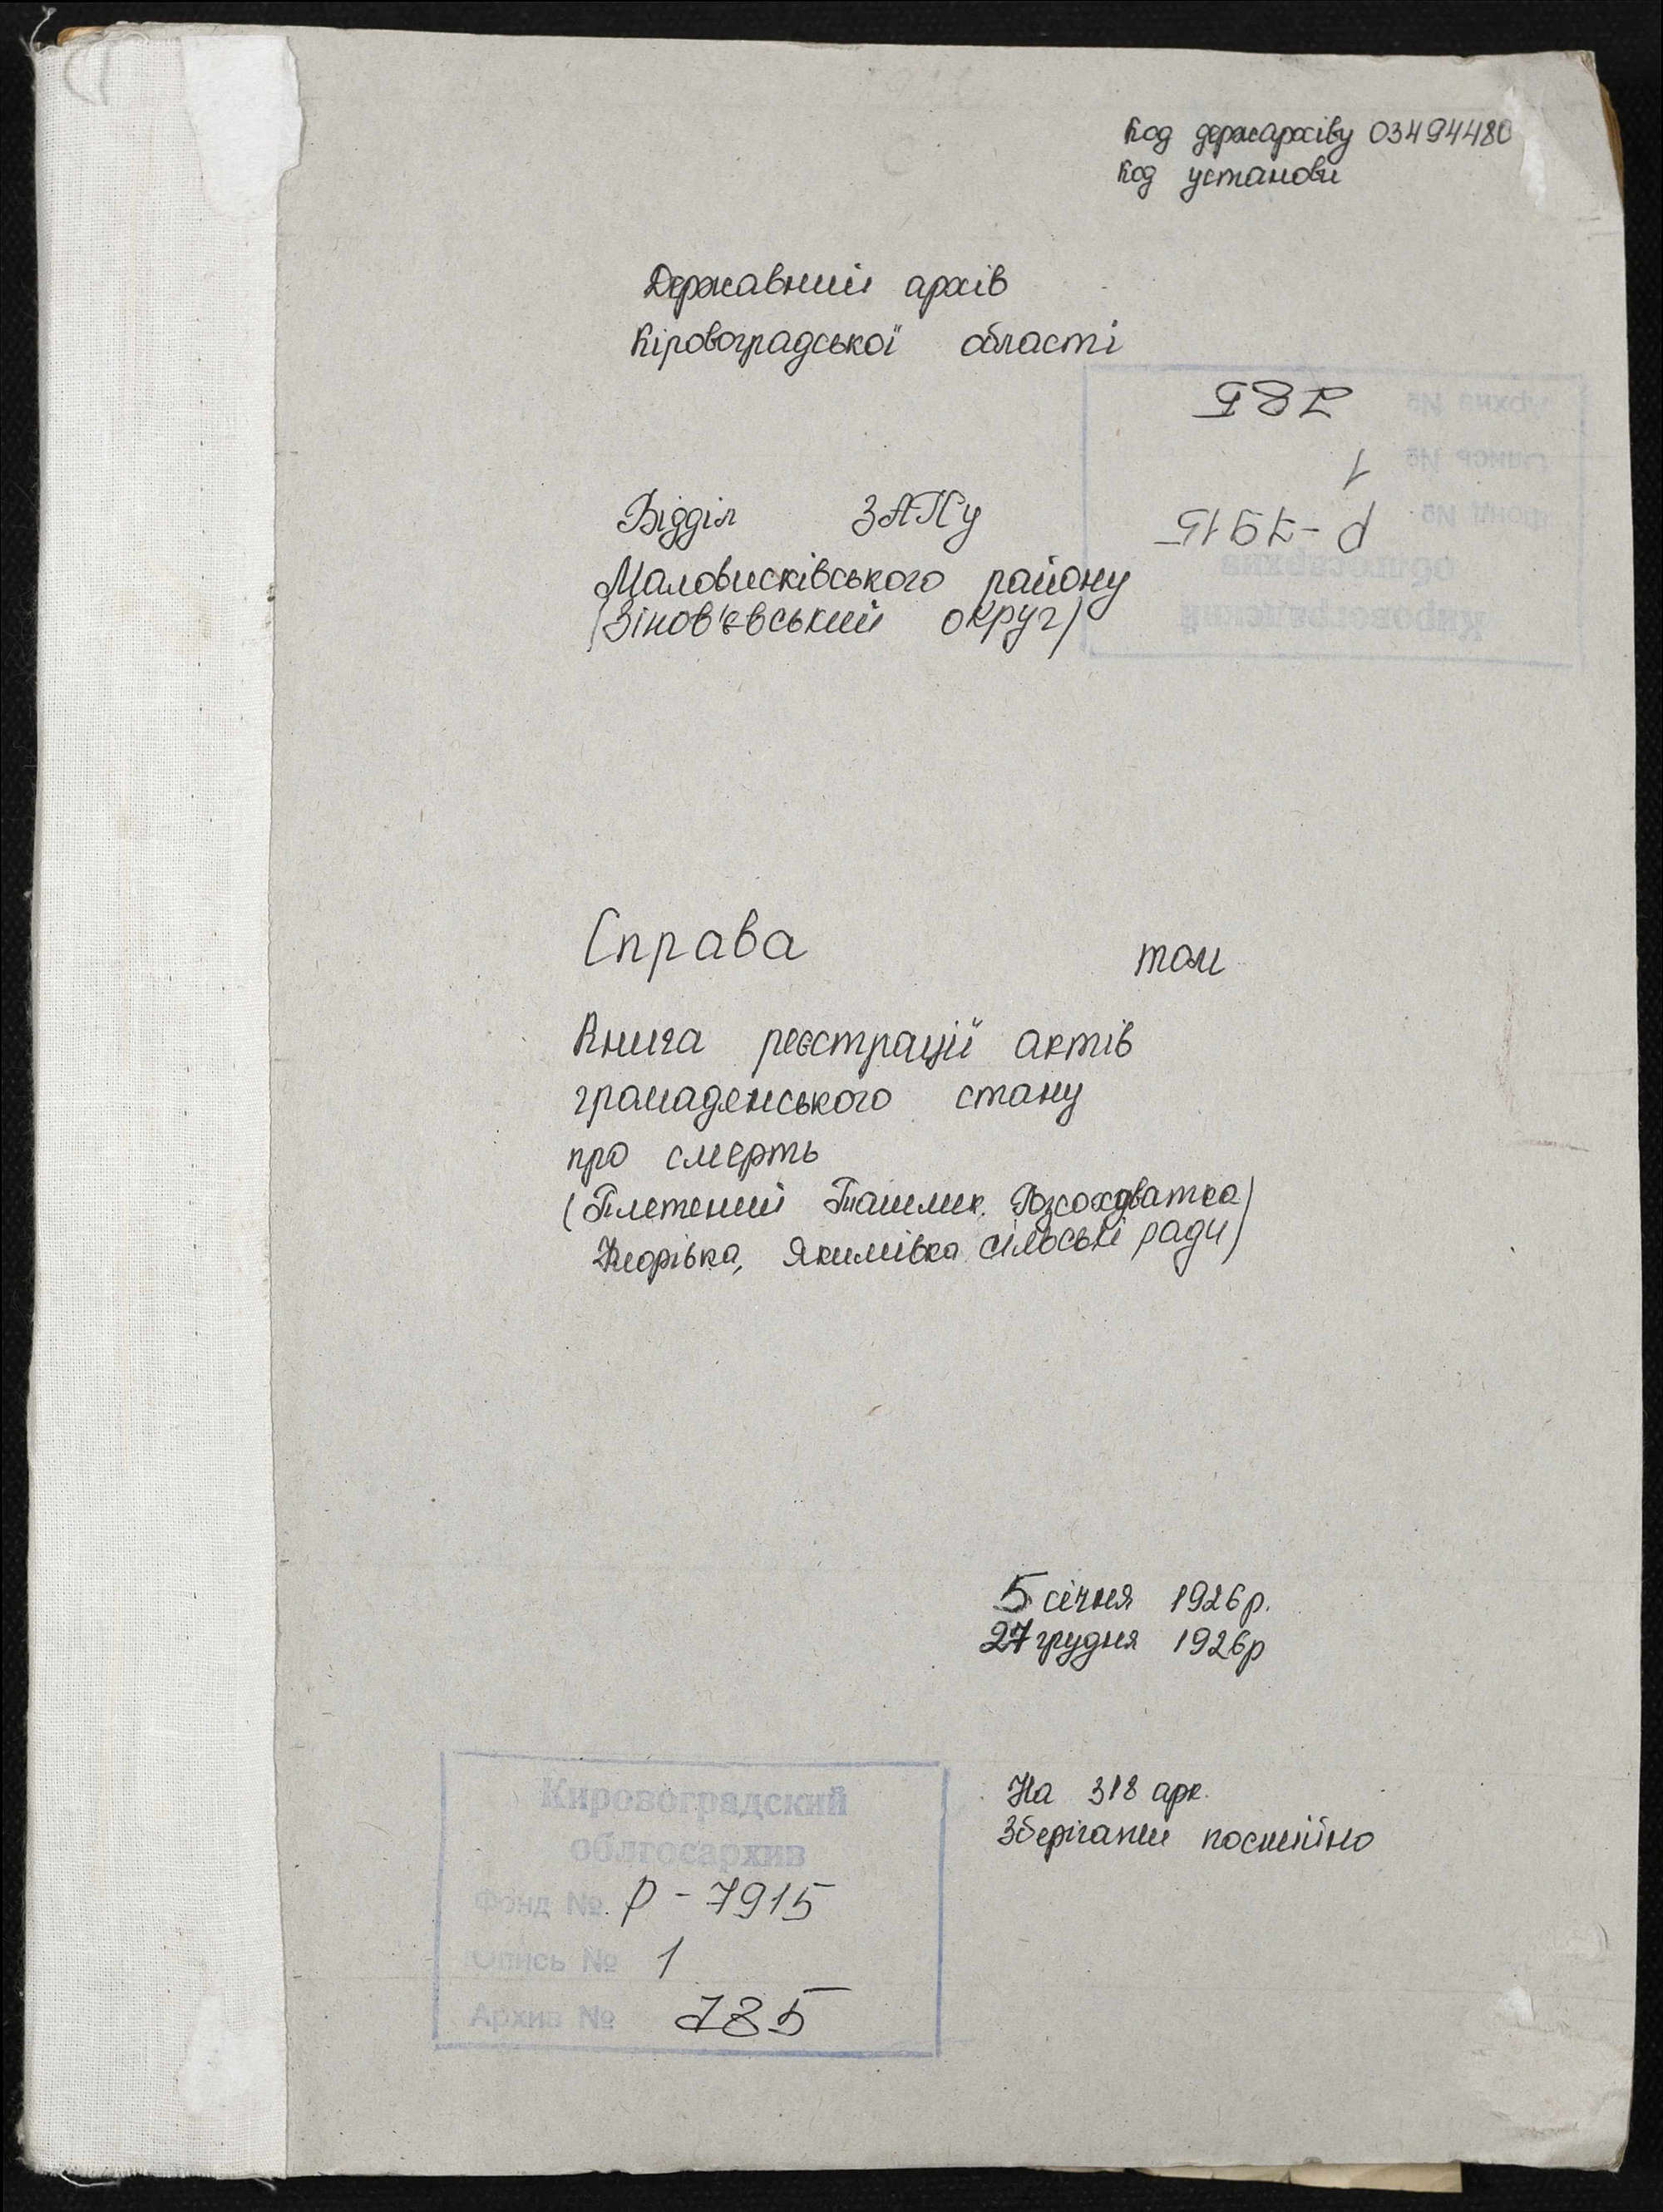 Код держархіву 03494480
Код установи
Державний архів
Кіровоградської області
Архив № 785
Опись № 1
Фонд № Р-7915
облгосархив
Кировоградский
Відділ ЗАГСу
Маловисківського району
(Зінов'євський округ)
Справа том
Книга реєстрації актів
громадянського стану
про смерть
(Плетений Ташлик, Розсохуватка
Якимівка сільські ради)
5 січня 1926р.
27 грудня 1926р
На 318 арк.
Зберігати постійно
Кировоградский
облгосархив
Фонд № Р-7915
Опись № 1
Архив № 785